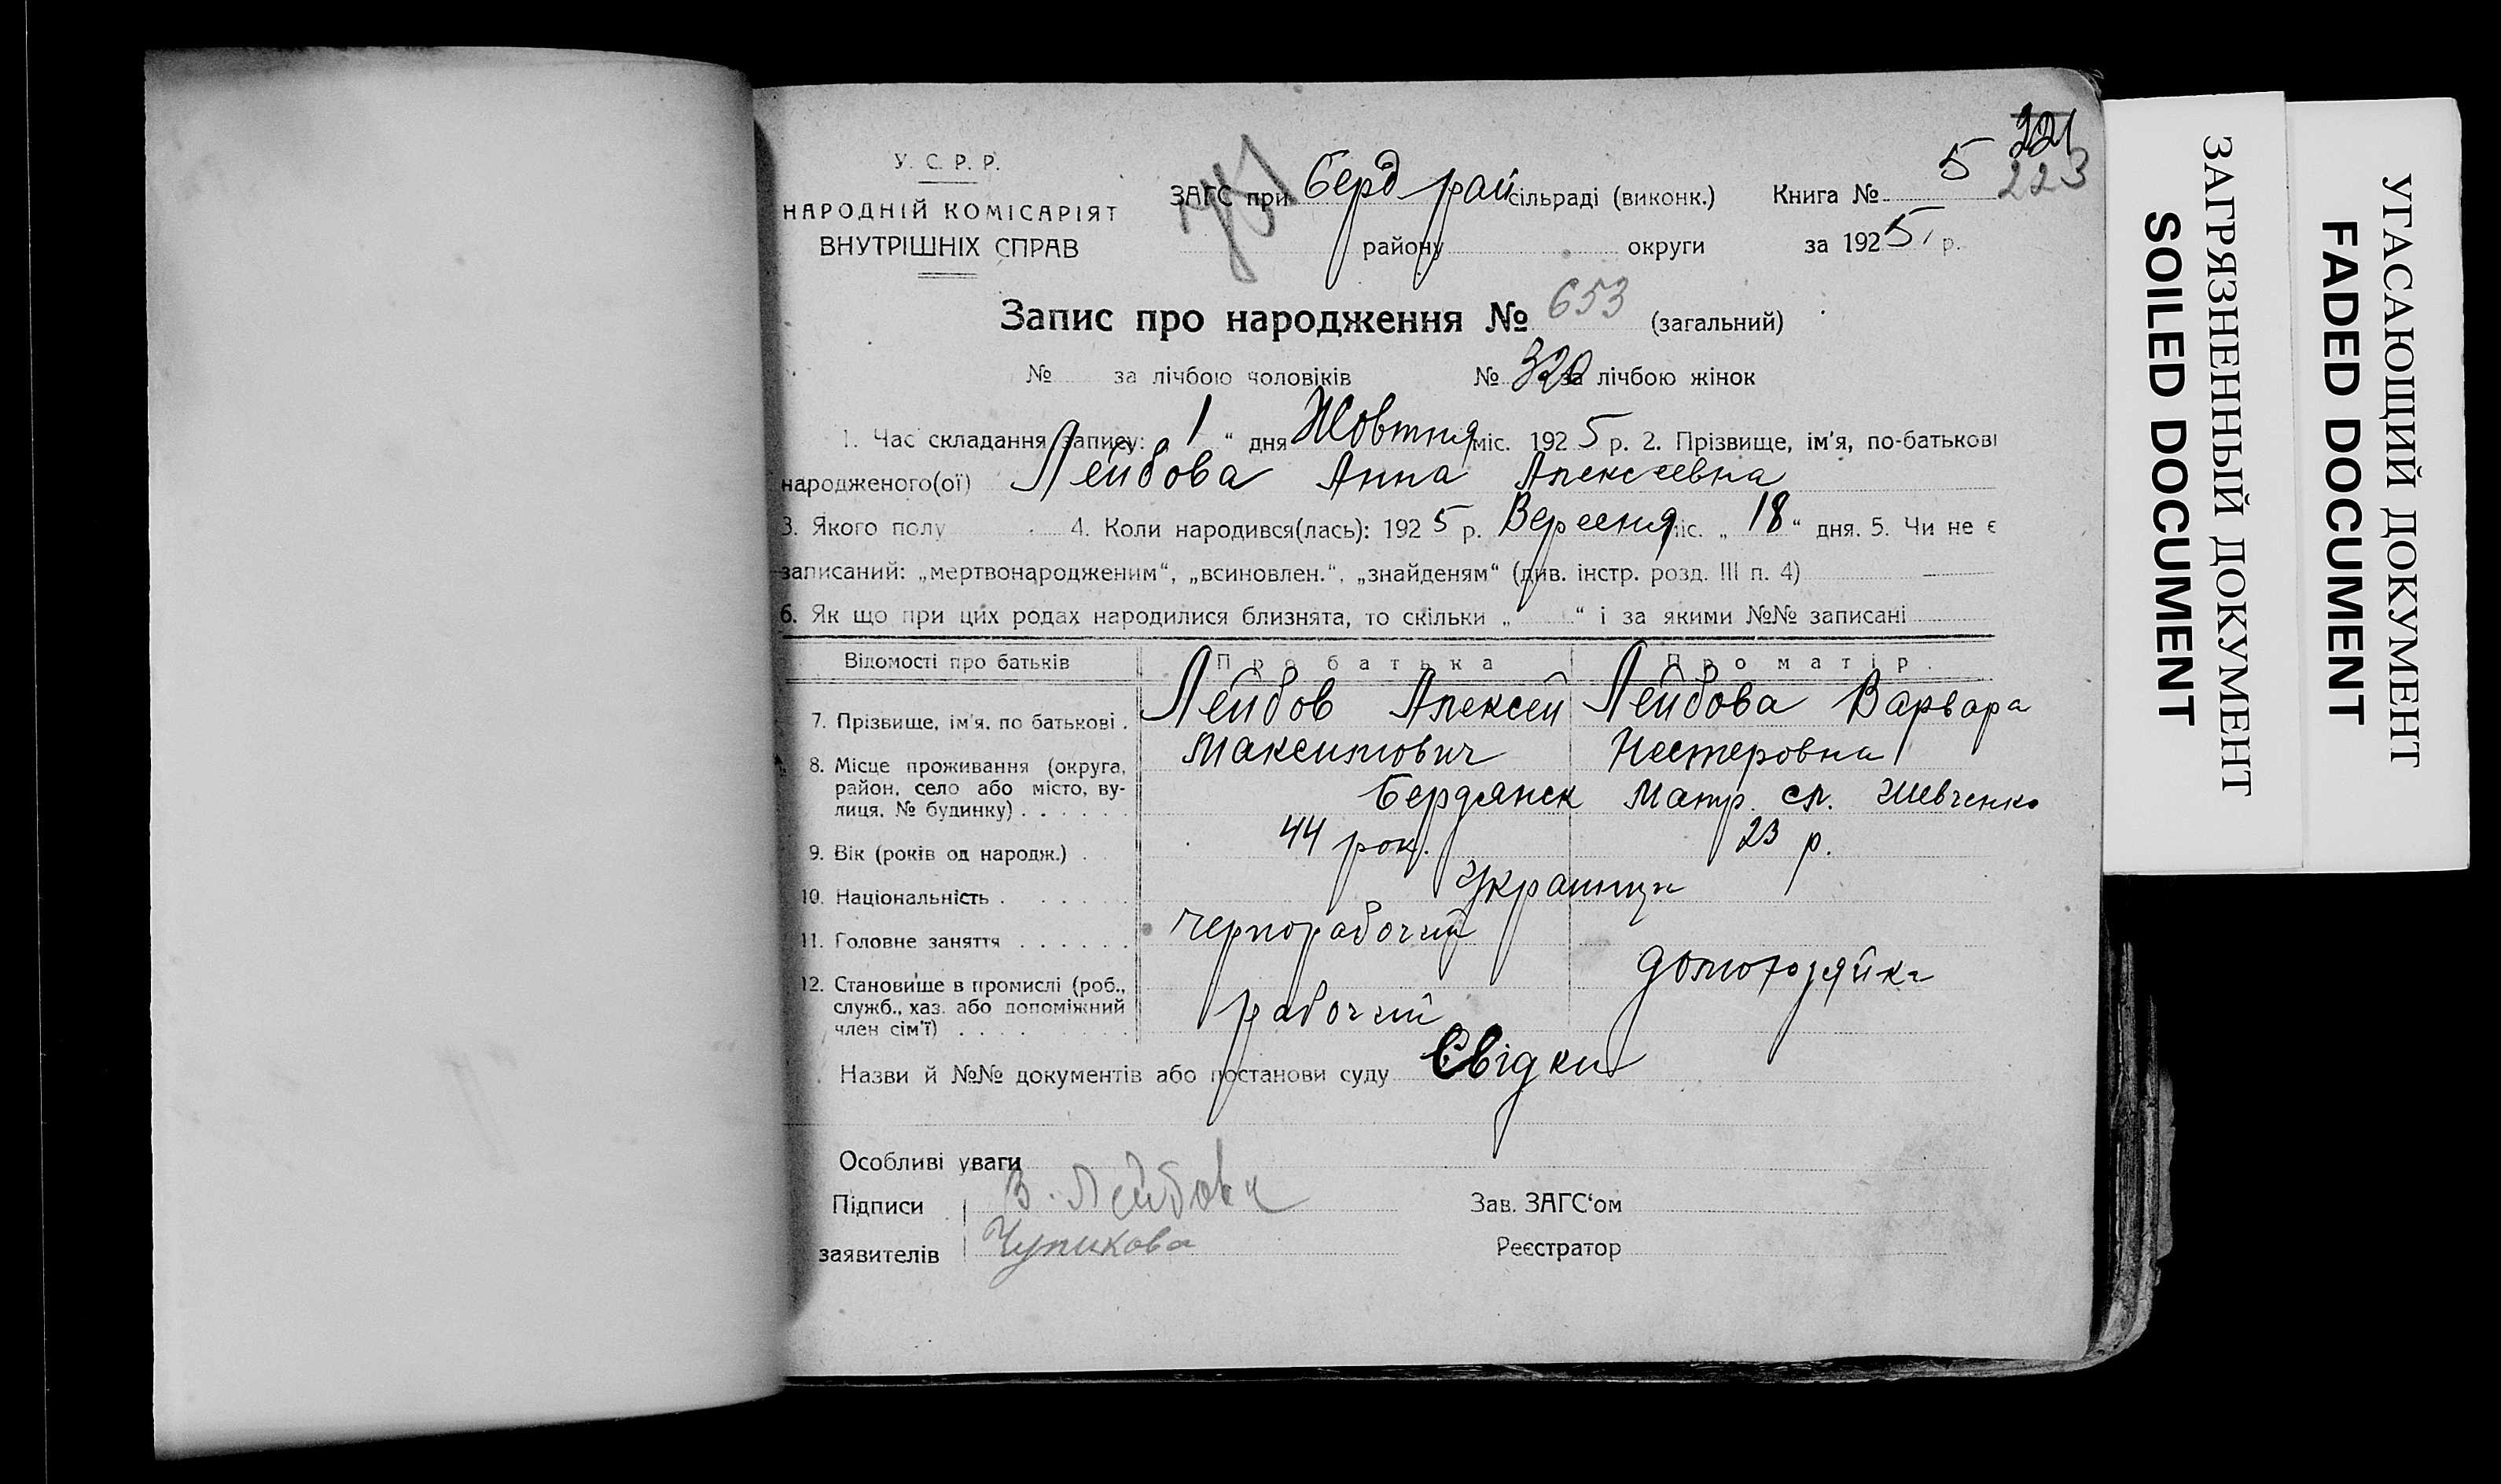 221
223
У. С. Р. Р.
НАРОДНІЙ КОМІСАРІЯТ
ВНУТРІШНІХ СПРАВ
ЗАГС при Берд рай сільраді (виконк.) Книга № 5
району округи за 1925 р.
Запис про народження № 653 (загальний)
№ за лічбою чоловіків № 320 за лічбою жінок
1. Час складання запису: „ 1 “ дня Жовтня міс. 1925 р. 2. Прізвище, ім'я, по-батькові
народженого(ої) Лейбова Анна Алексеевна
3. Якого полу 4. Коли народився(лась): 1925 р. Вересня міс. „ 18 “ дня. 5. Чи не є
записаний: „мертвонародженим“, „всиновлен.“, „знайденям“ (див. інстр. розд. III п. 4)
6. Як що при цих родах народилися близнята, то скільки „ “ і за якими №№ записані
Відомості про батьків Про батька Про матір.
7. Прізвище, ім'я, по батькові . Лейбов Алексей Лейбова Варвара
Максимович Нестеровна
8. Місце проживання (округа,
район, село або місто, ву-
лиця, № будинку) . . . . . . Бердянск сл. Шевченко
9. Вік (років од народж.) . 44 рок. 23 р.
10. Національність . . . . . . Украинци
11. Головне заняття . . . . . . Чернорабочий
домохозяйка
12. Становище в промислі (роб.,
служб., хаз. або допоміжний
член сім'ї) . . . . рабочий
Назви й №№ документів або постанови суду Свідки
Особливі уваги
Підписи В. Лейбова Зав. ЗАГС‘ом
заявителів Чупикова Реєстратор
ЗАГРЯЗНЕННЫЙ ДОКУМЕНТ
SOILED DOCUMENT
УГАСАЮЩИЙ ДОКУМЕНТ
FADED DOCUMENT